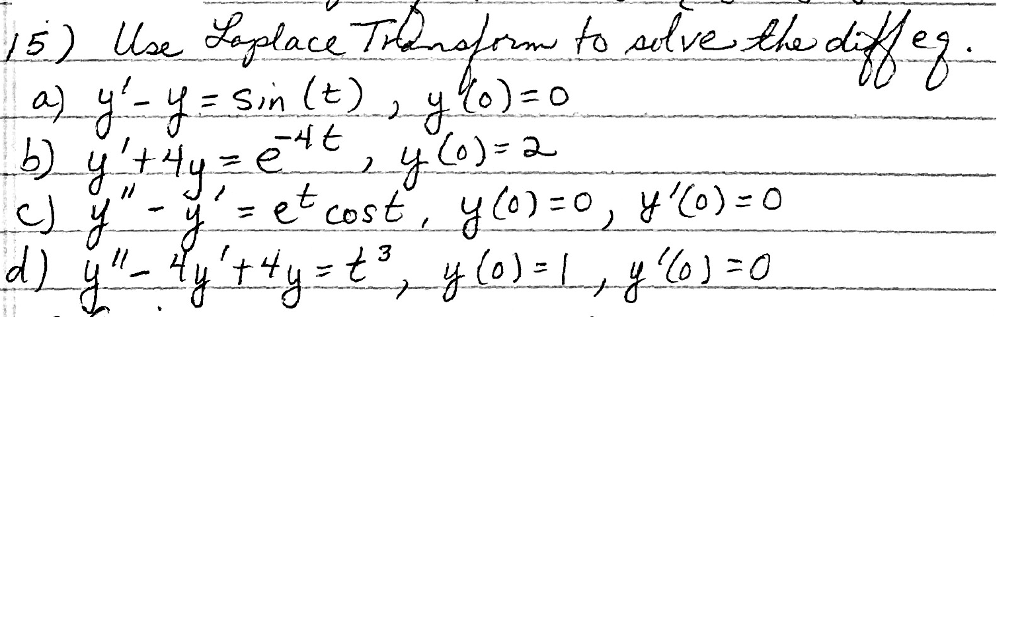 15) Use Laplace Transform to solve the diffeq.
a) y' - y = sin(t), y(0)=0
b) y' + 4y = e^-4t, y(0)=2
c) y'' - y' = e^t cos t, y(0)=0, y'(0)=0
d) y'' - 4y' + 4y = t³, y(0)=1, y'(0)=0